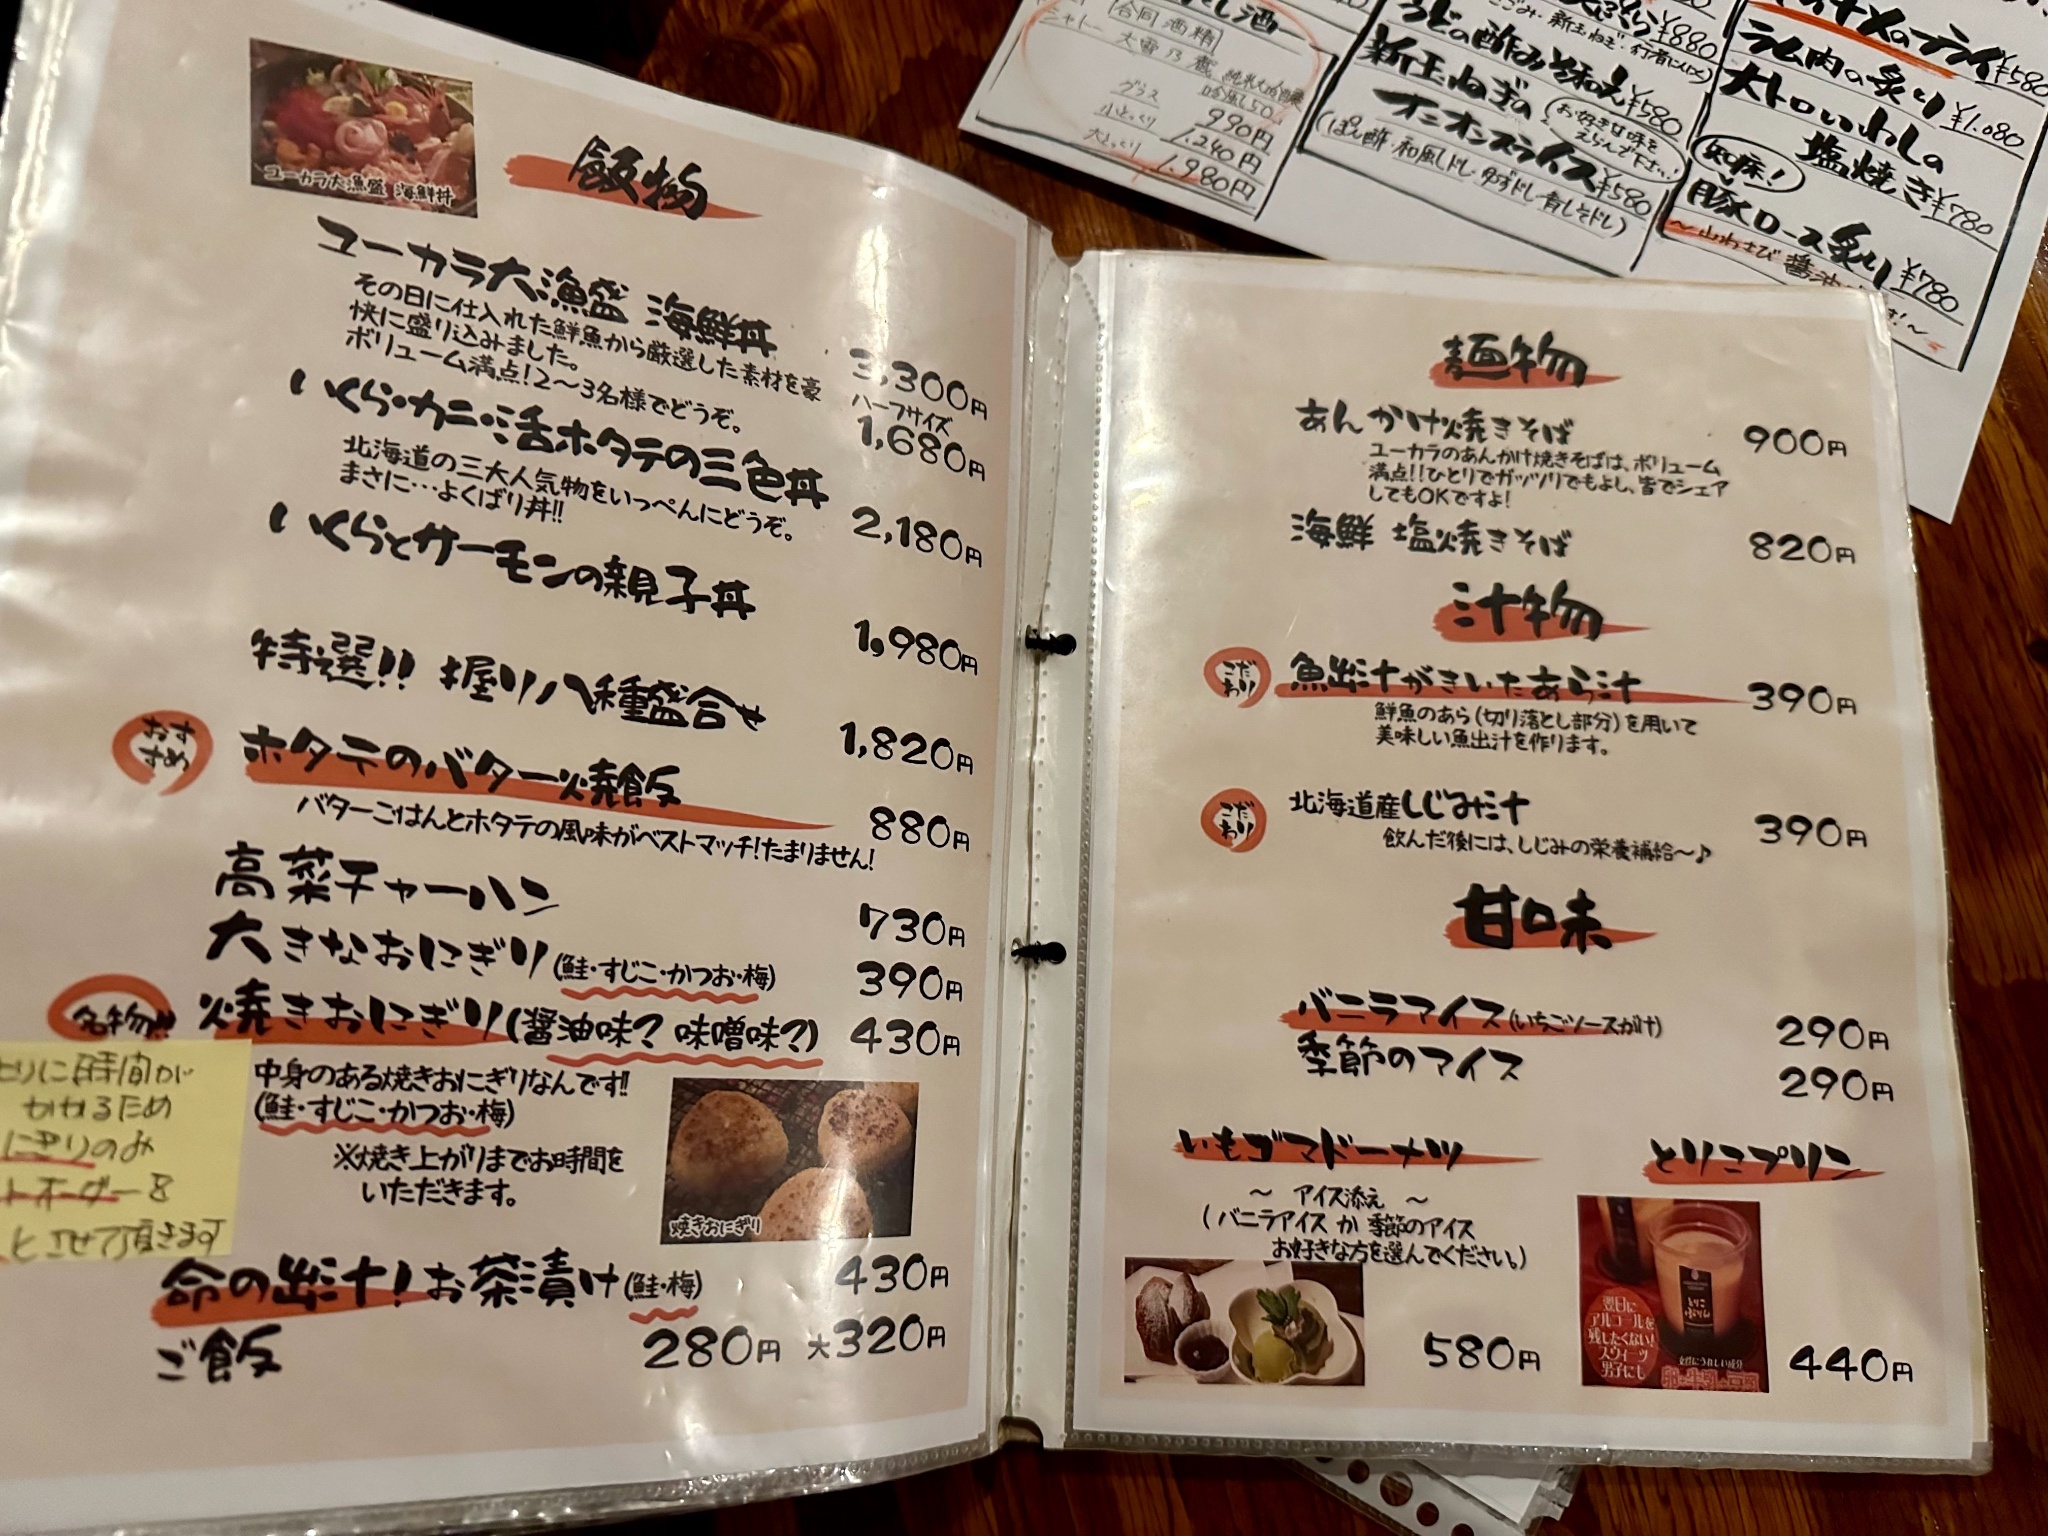 ユーカラ大漁盛 海鮮丼
飯物
ユーカラ大漁盛 海鮮丼
3,300円
その日に仕入れた鮮魚から厳選した素材を豪
快に盛り込みました。
ボリューム満点!2〜3名様でどうぞ。
ハーフサイズ
1,680円
いくら・カニ・活ホタテの三色丼
2,180円
北海道の三大人気物をいっぺんにどうぞ。
まさに…よくばり丼!!
いくらとサーモンの親子丼
1,980円
特選!! 握り八種盛合せ
1,820円
おすすめ
ホタテのバター焼飯
880円
バターごはんとホタテの風味がベストマッチ!たまりません!
高菜チャーハン
730円
大きなおにぎり(鮭・すじこ・かつお・梅)
390円
名物!!
焼きおにぎり(醤油味? 味噌味?)
430円
中身のある焼きおにぎりなんです!!
(鮭・すじこ・かつお・梅)
※焼き上がりまでお時間を
いただきます。
焼きおにぎり
りに時間が
かかるため
にぎりのみ
トオーダーを
とさせて頂きます
命の出汁!お茶漬け(鮭・梅)
430円
ご飯
280円 大320円
麺物
あんかけ焼きそば
900円
ユーカラのあんかけ焼きそばは、ボリューム
満点!!ひとりでガッツリでもよし、皆でシェア
してもOKですよ!
海鮮 塩焼きそば
820円
汁物
こだわり
魚出汁がきいたあら汁
390円
鮮魚のあら(切り落とし部分)を用いて
美味しい魚出汁を作ります。
こだわり
北海道産しじみ汁
390円
飲んだ後には、しじみの栄養補給〜♪
甘味
バニラアイス(いちごソースがけ)
290円
季節のアイス
290円
いもゴマドーナツ
〜 アイス添え 〜
(バニラアイス か 季節のアイス
お好きな方を選んでください。)
580円
とりこプリン
とりこ
ぷりん
翌日に
アルコールを
残したくない!
スウィーツ
男子にも
女性にうれしい成分
440円
合同酒精
大雪乃蔵
グラス
990円
小とっくり
1.240円
大とっくり
1.980円
¥880
うどの酢みそ和え ¥580
新玉ねぎの
オニオンスライス ¥580
(お好きな味を
えらんで下さい!)
(ぽん酢・和風ドレ・ゆずドレ・青しそドレ)
フライ ¥580
ラム肉の炙り ¥1.080
大トロいわしの
塩焼き ¥780
知床!
豚ロース炙り ¥780
〜山わさび醤油